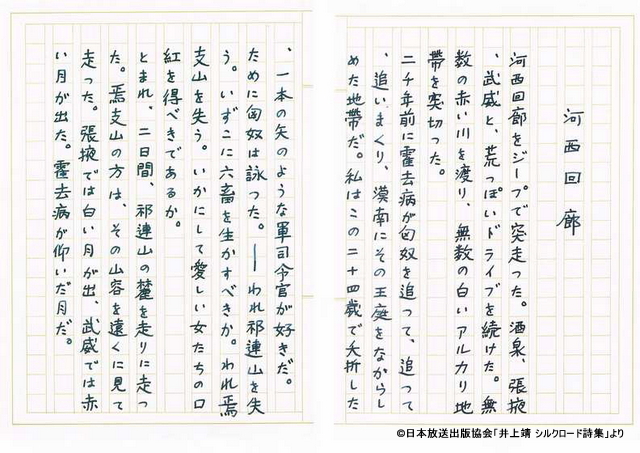 河西回廊
河西回廊をジープで突走った。酒泉、張掖
、武威と、荒っぽいドライブを続けた。無
数の赤い川を渡り、無数の白いアルカリ地
帯を突切った。
二千年前に霍去病が匈奴を追って、追って
、追いまくり、漠南にその王庭をなからし
めた地帯だ。私はこの二十四歳で夭折した
、一本の矢のような軍司令官が好きだ。
ために匈奴は詠った。――われ祁連山を失
う。いずこに六畜を生かすべきか。われ焉
支山を失う。いかにして愛しい女たちの口
紅を得べきであるか。
とまれ、二日間、祁連山の麓を走りに走っ
た。焉支山の方は、その山容を遠くに見て
走った。張掖では白い月が出、武威では赤
い月が出た。霍去病が仰いだ月だ。
©日本放送出版協会「井上靖 シルクロード詩集」より